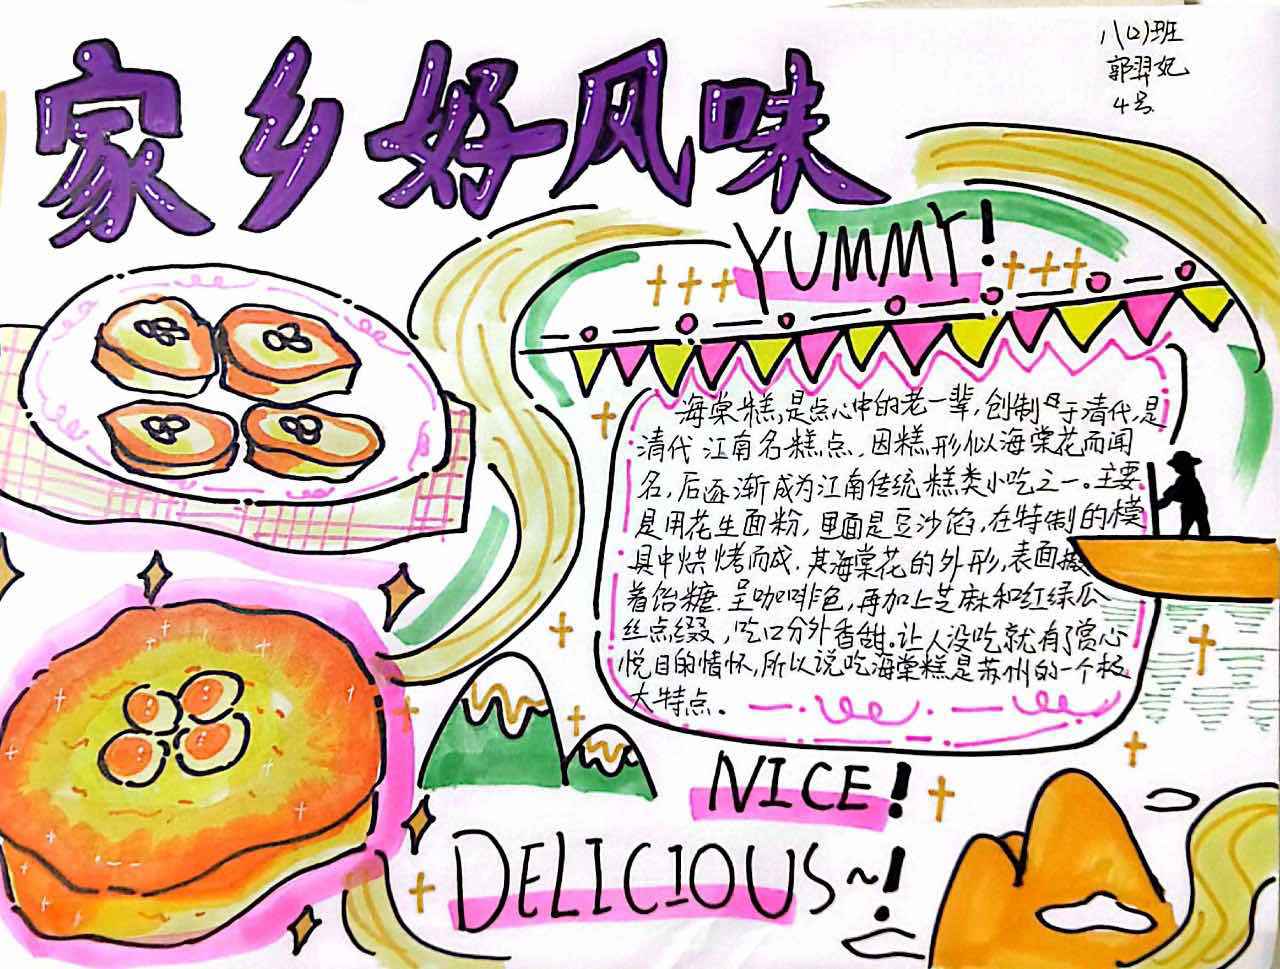 家乡好风味
八(2)班
郭羿妃
4号
YUMMY!
海棠糕,是点心中的老一辈,创制于清代,是
清代江南名糕点,因糕形似海棠花而闻
名,后逐渐成为江南传统糕类小吃之一。主要
是用花生面粉,里面是豆沙馅,在特制的模
具中烘烤而成.其海棠花的外形,表面撒
着饴糖.呈咖啡色,再加上芝麻和红绿瓜
丝点缀,吃口分外香甜。让人没吃就有了赏心
悦目的情怀,所以说吃海棠糕是苏州的一个极
大特点。
NICE!
DELICIOUS~!